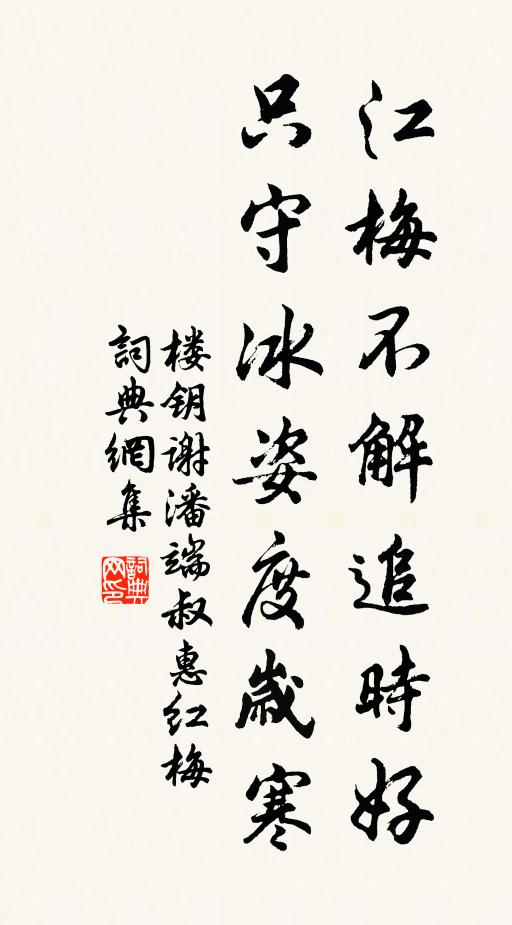 江梅不解追時好
只守冰姿度歲寒
楼钥谢潘端叔惠红梅
詞典網集
詞典网印